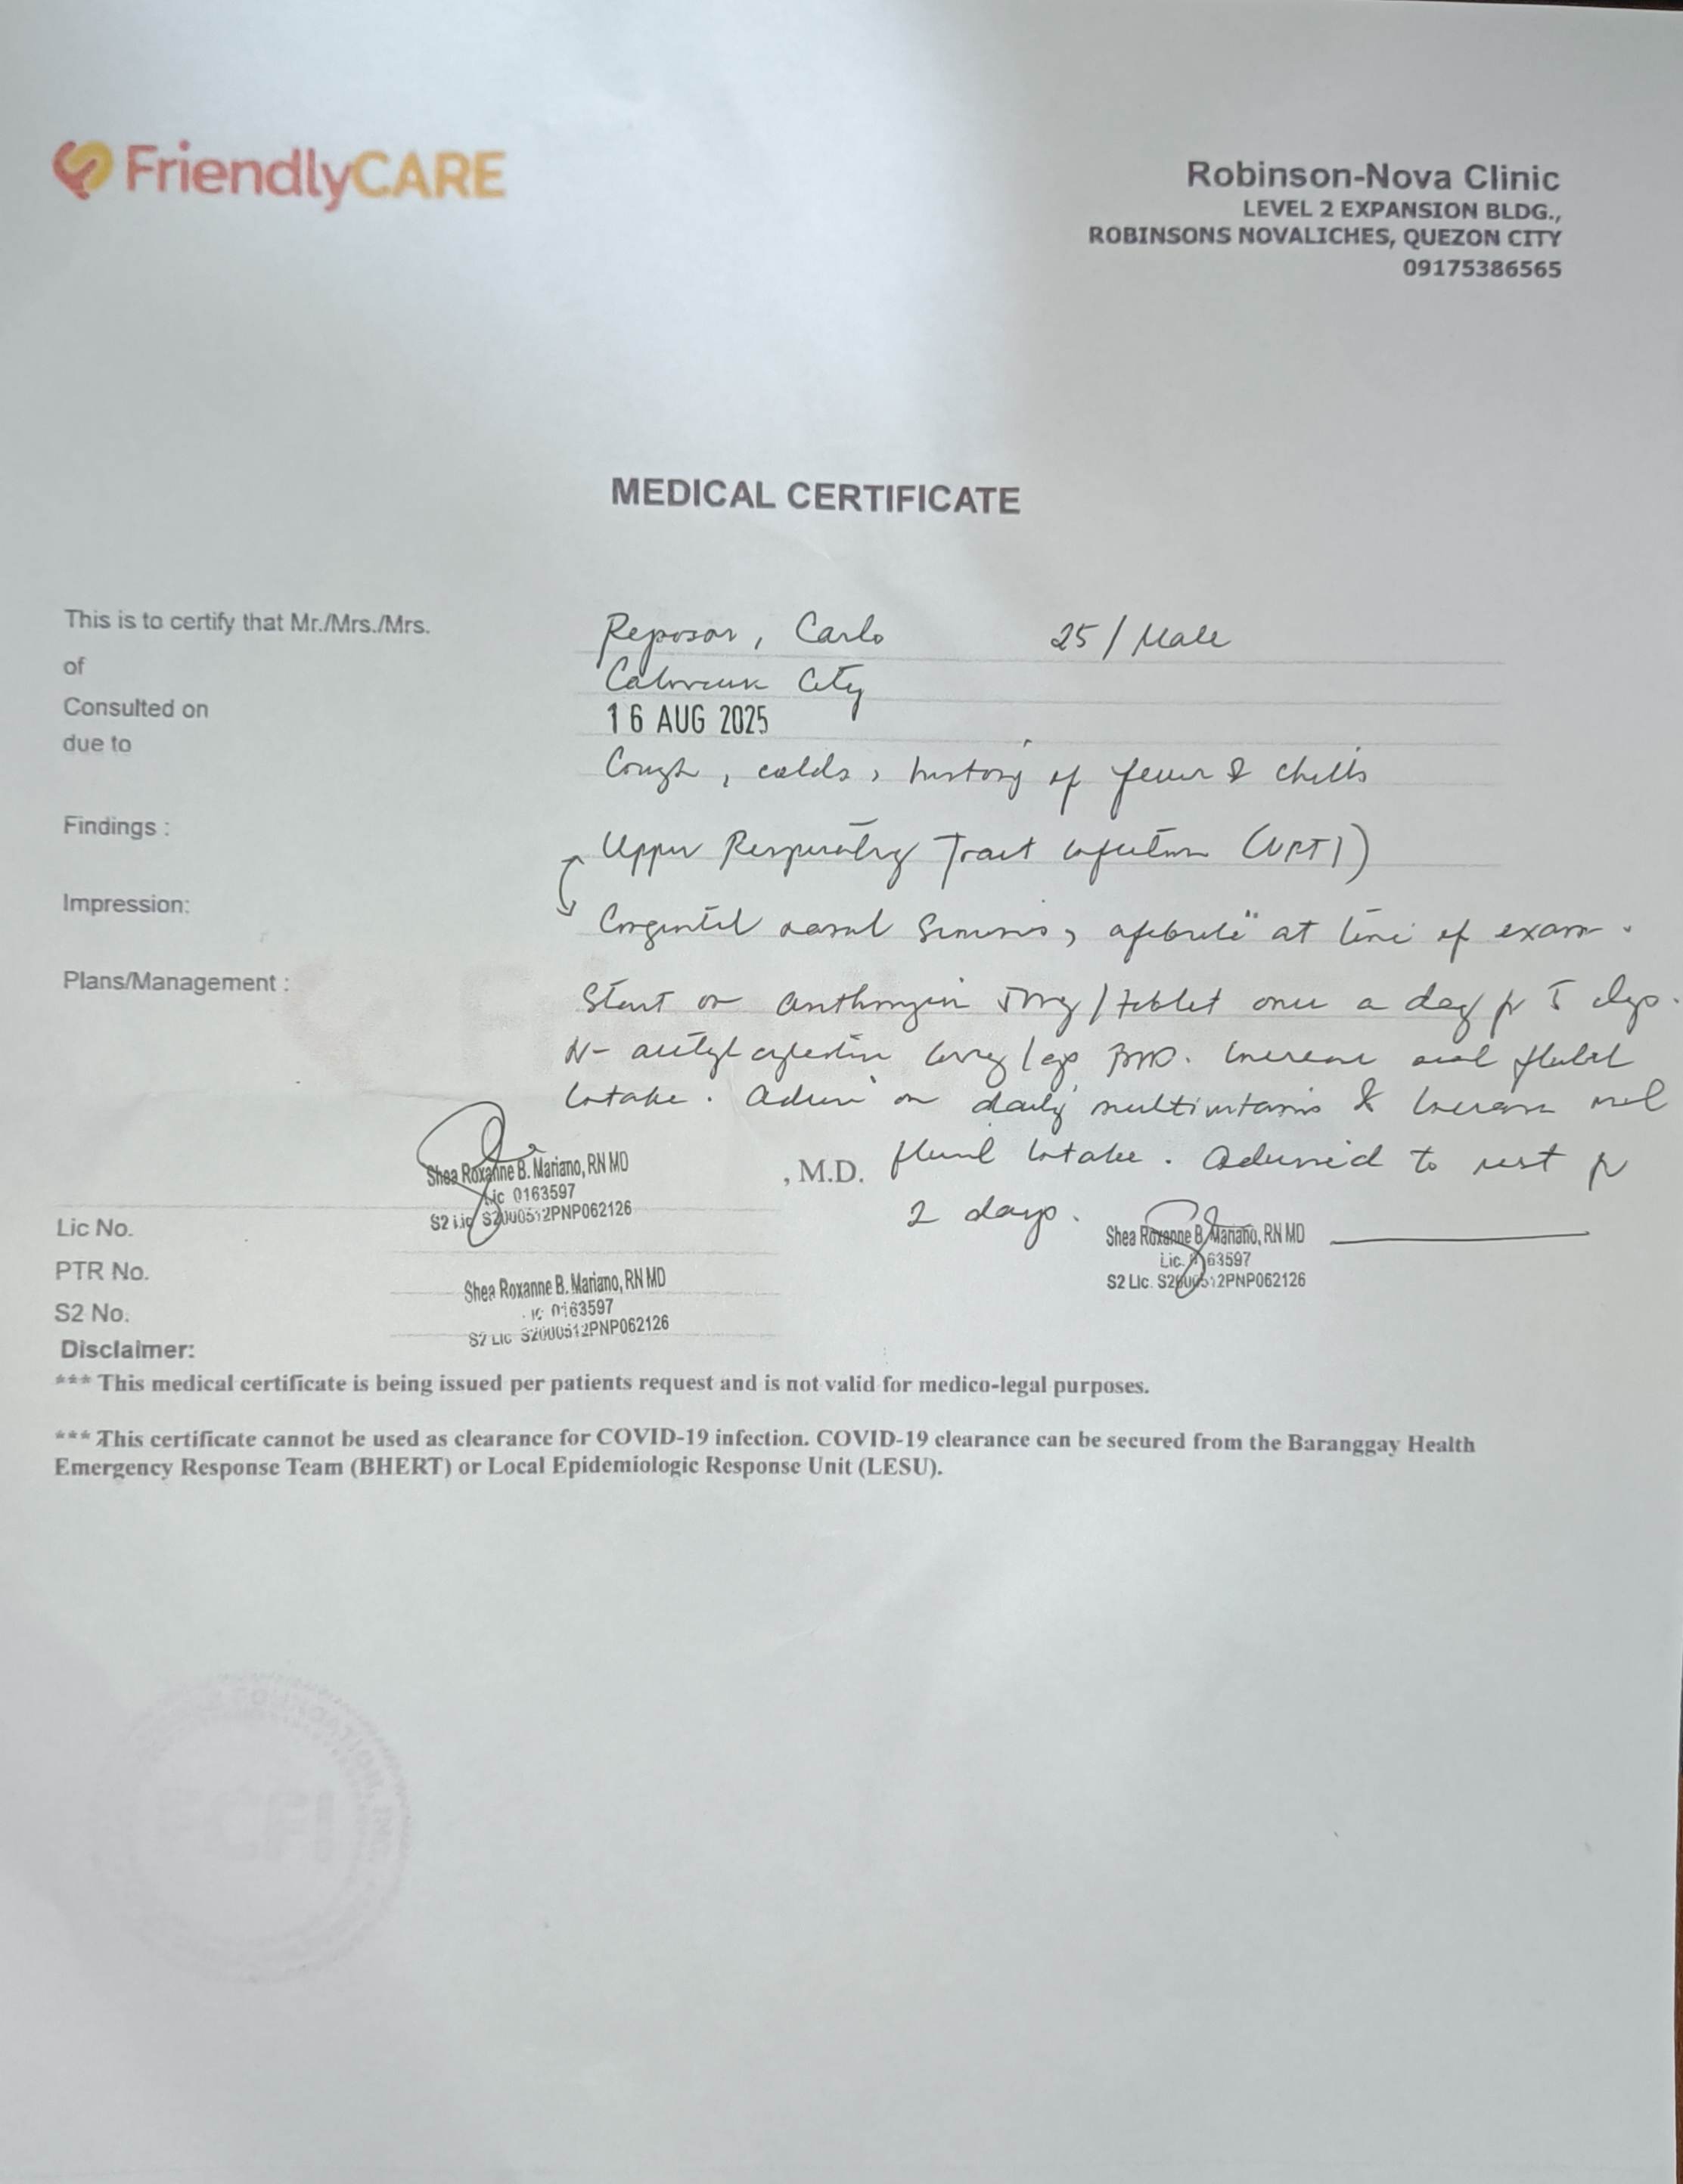 FriendlyCARE
Robinson-Nova Clinic
LEVEL 2 EXPANSION BLDG.,
ROBINSONS NOVALICHES, QUEZON CITY
09175386565
MEDICAL CERTIFICATE
This is to certify that Mr./Mrs./Mrs. Reposar, Carlo 25 / Male
of Caloocan City
Consulted on 16 AUG 2025
due to Cough, colds, history of fever & chills
Findings : Upper Respiratory Tract Infection (URTI)
Impression: nasal sinuses, afebrile at time of exam.
Plans/Management : Start on /tablet once a day for 5 days.
N-acetylcysteine Increase oral fluid
Intake. on daily multivitamins & Increase oral
fluid Intake. Advised to rest for
2 days.
Shea Roxanne B. Mariano, RN MD
Lic 0163597
S2 Lic S2000512PNP062126
, M.D.
Shea Roxanne B. Mariano, RN MD
Lic. 63597
S2 Lic. S2000512PNP062126
Lic No.
PTR No.
S2 No.
Shea Roxanne B. Mariano, RN MD
0163597
S2 Lic S2000512PNP062126
Disclaimer:
*** This medical certificate is being issued per patients request and is not valid for medico-legal purposes.
*** This certificate cannot be used as clearance for COVID-19 infection. COVID-19 clearance can be secured from the Baranggay Health
Emergency Response Team (BHERT) or Local Epidemiologic Response Unit (LESU).